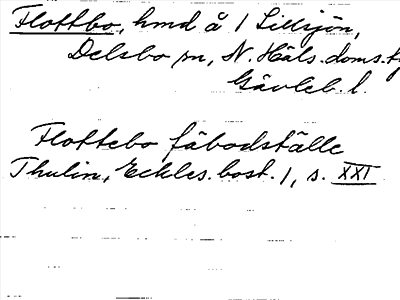 Flottbo, hmd å 1 Lillsjön,
Delsbo sn, N. Häls. doms.
Gävleb. l.
Flottebo fäbodställe
Thulin, Eckles. bost. 1, s. XXI